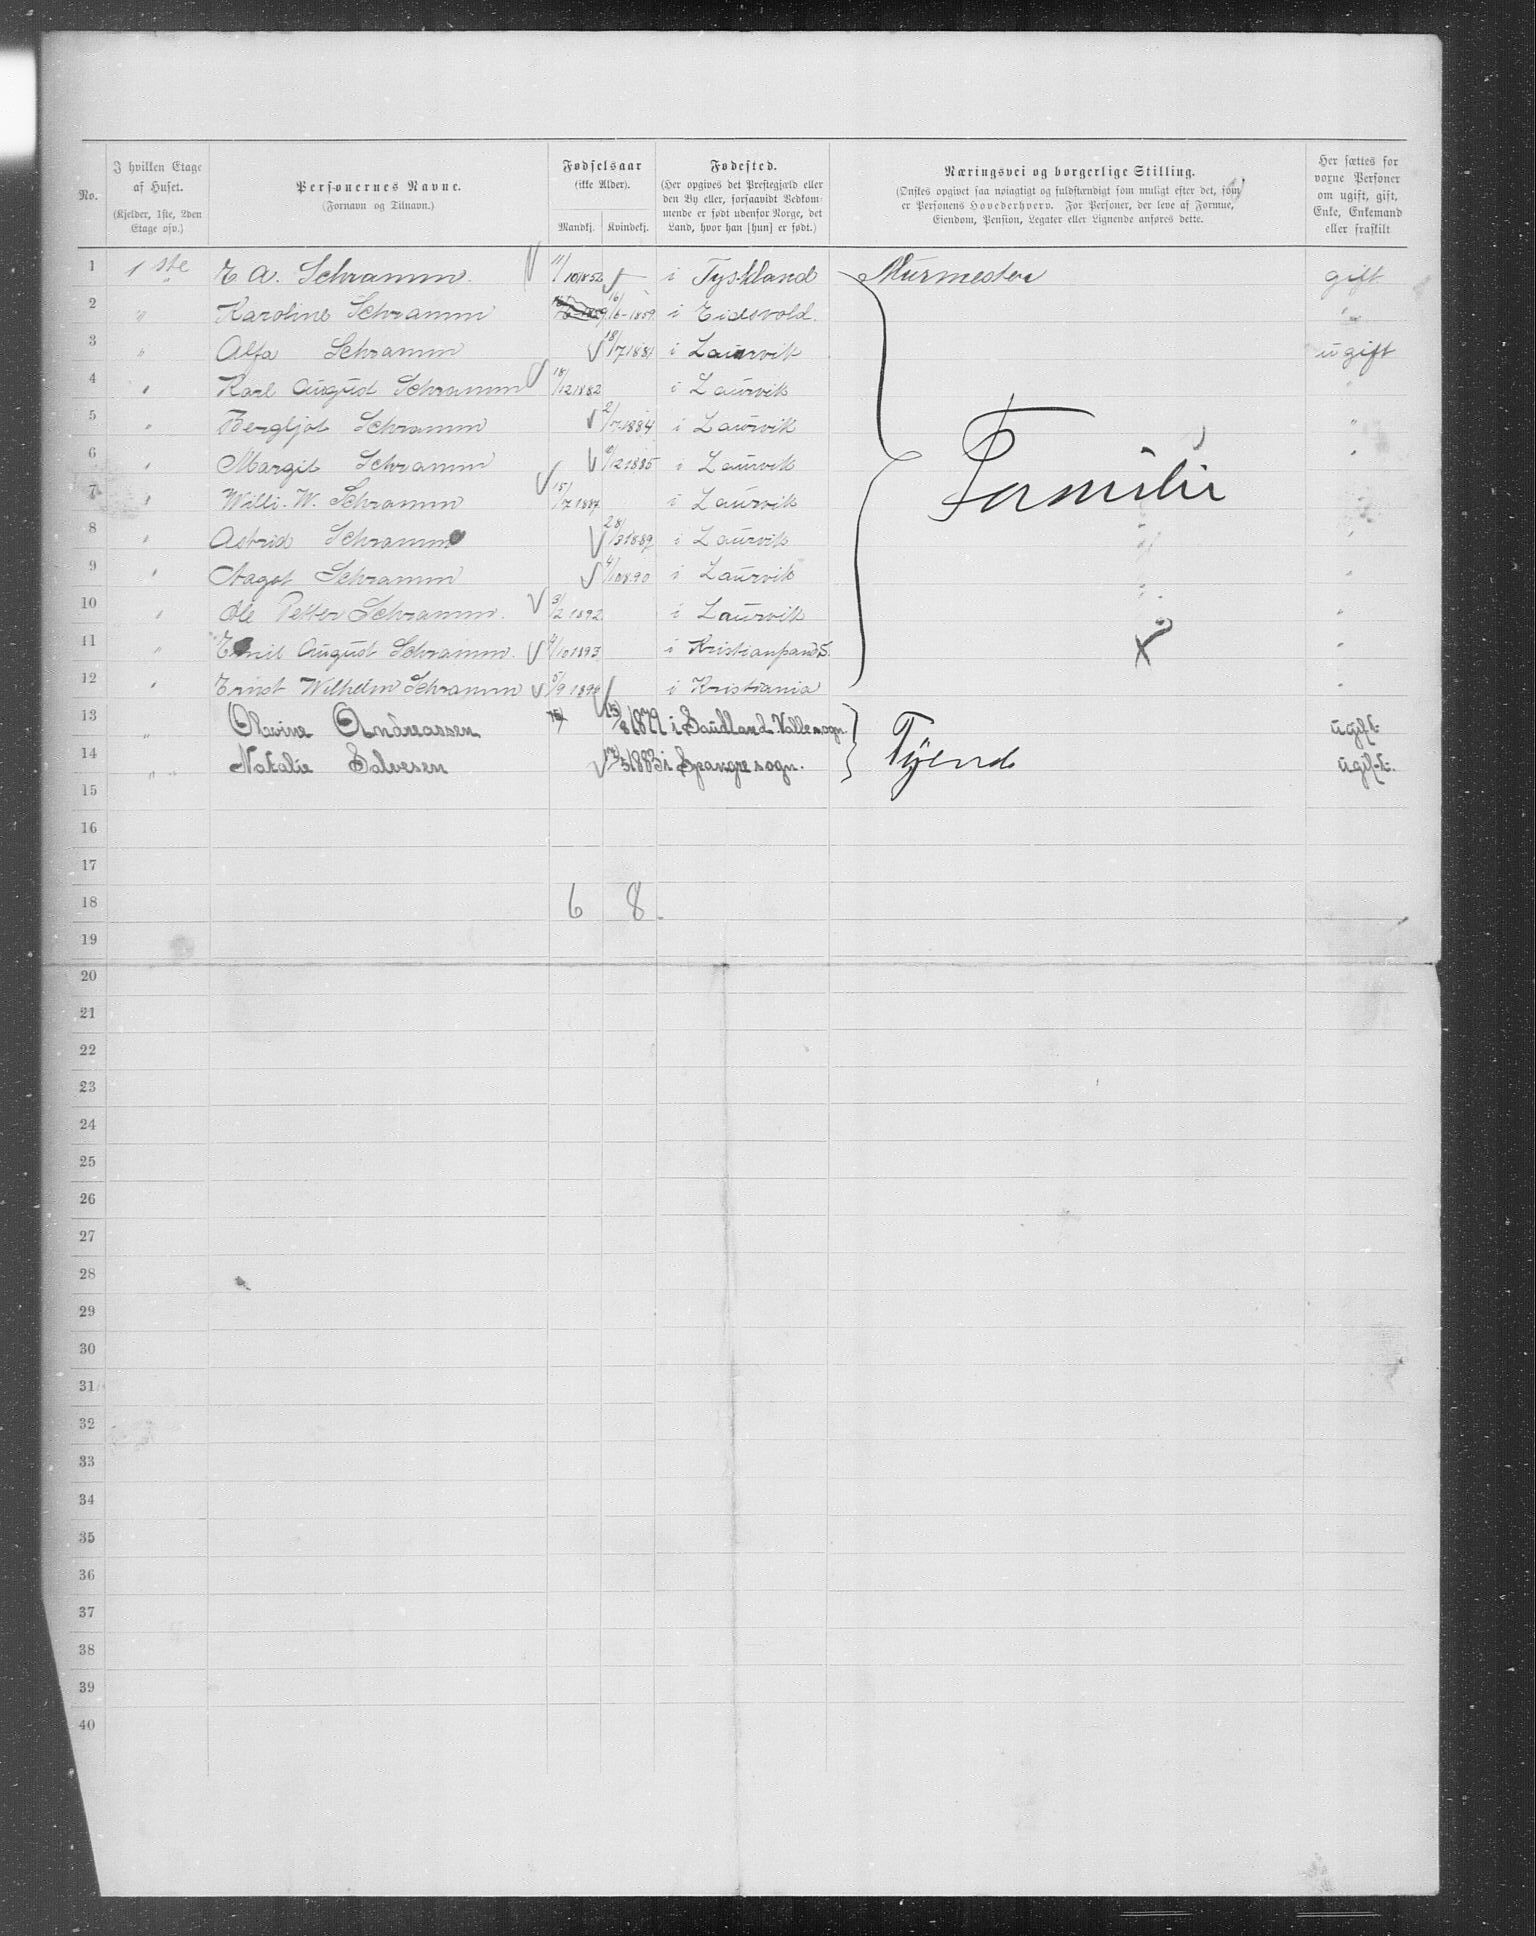 No. | I hvilken Etage af Huset. (Kjelder, 1ste, 2den Etage osv.) | Personernes Navne. (Fornavn og Tilnavn.) | Fødselsaar (ikke Alder). Mandkj. | Kvindekj. | Fødested. (Her opgives det Prestegjæld eller den By eller, forsaavidt Vedkommende er født udenfor Norge, det Land, hvor han [hun] er født.) | Næringsvei og borgerlige Stilling. (Ønskes opgivet saa nøiagtigt og fuldstændigt som muligt efter det, som er Personens Hovederhverv. For Personer, der leve af Formue, Eiendom, Pension, Legater eller Lignende anføres dette. | Her sættes for voxne Personer om ugift, gift, Enke, Enkemand eller fraskilt
1 1ste E. A. Schramm. 11/10 1852 i Tyskland Murmester gift
2 " Karoline Schramm 16/6-1859 i Eidsvold. "
3 " Alfa Schramm 18/7 1881 i Laurvik ugift
4 " Karl August Schramm 18/12 1882 i Laurvik "
5 " Bergljot Schramm 2/7 1884 i Laurvik "
6 " Margit Schramm /12 1885 i Laurvik " Familie
7 " Willi. W. Schramm 15/7 1887 i Laurvik "
8 " Astrid Schramm 28/3 1889 i Laurvik "
9 " Aagot Schramm 4/10 890 i Laurvik "
10 " Ole Petter Schramm. 3/2 1892 i Laurvik "
11 " Emil August Schramm. 4/10 1893 i Kristiansands. "
12 " Ernst Wilhelm Schramm 5/9 189 i Kristiania "
13 " Olovine Andreassen 15/8 1879 i Saudland Valle sogn. ugift
14 " " Natalie Salvesen /5 1883 i Spangre sogn. Tyende ugift.
15
16
17
18 6 8
19
20
21
22
23
24
25
26
27
28
29
30
31
32
33
34
35
36
37
38
39
40